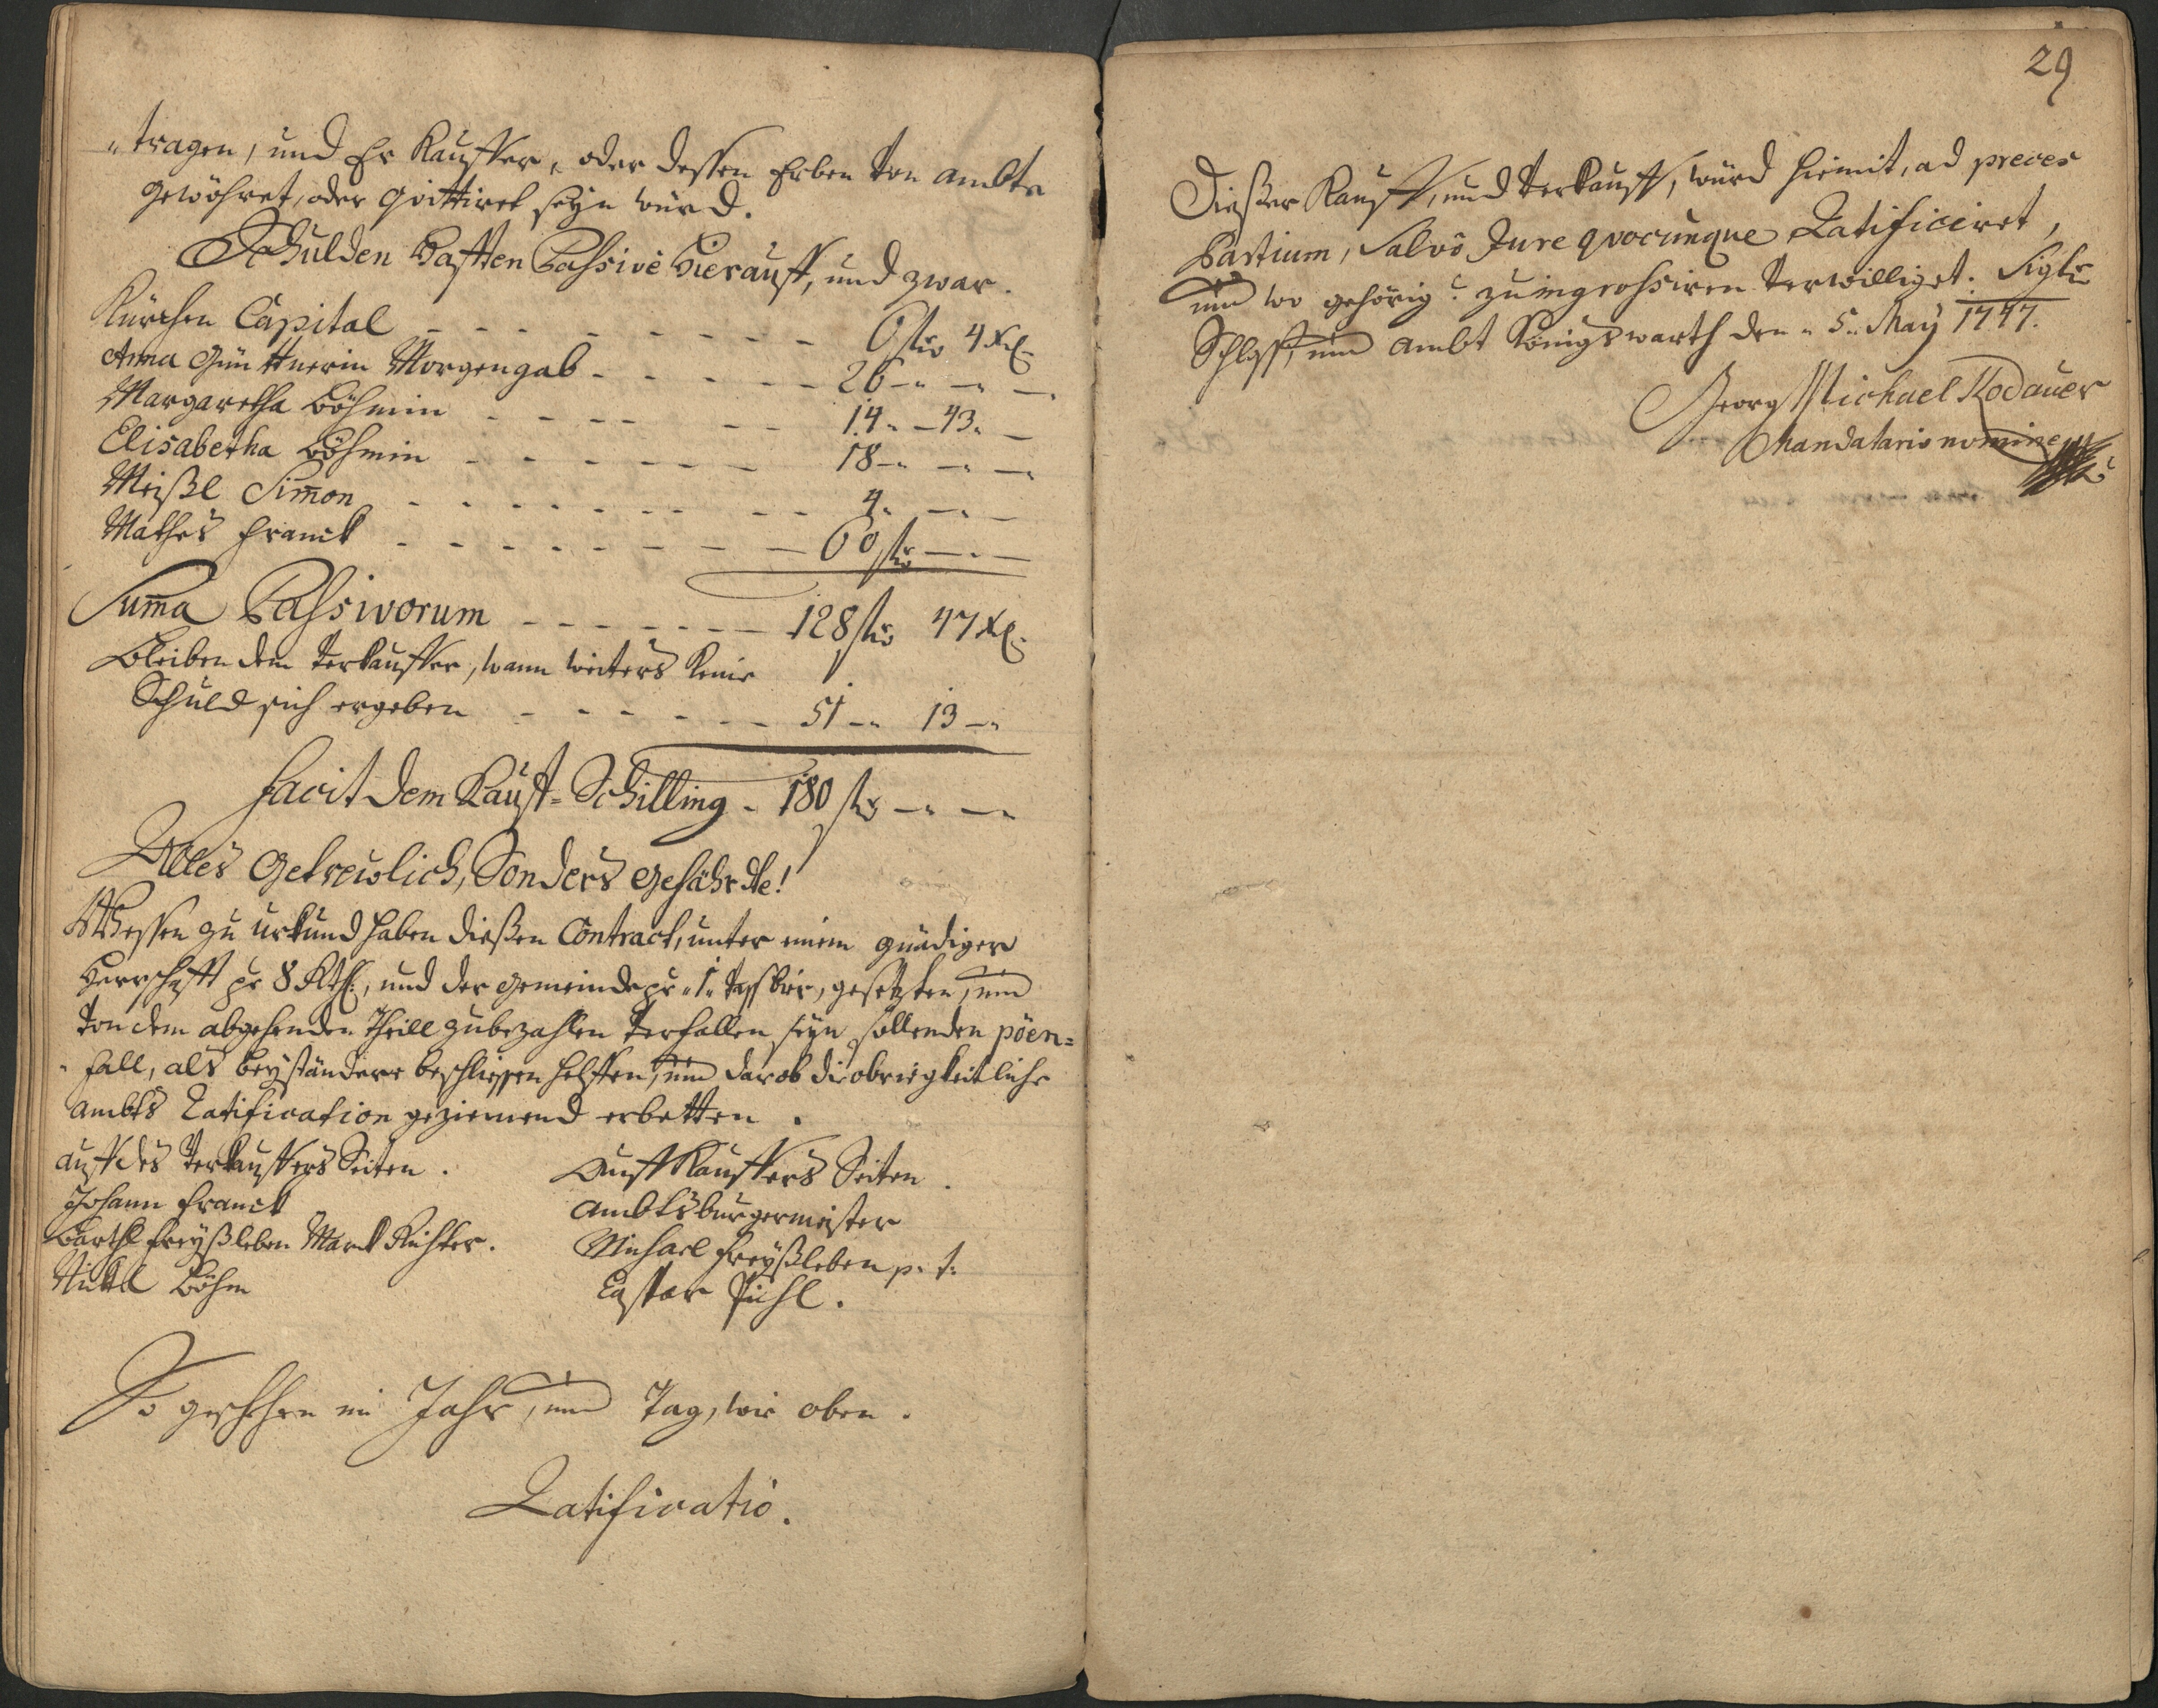 "tragen, und Er Kauffer, oder dessen Erben von Ambts
gewöhret, oder quittiret seyn würd.
Schulden Hafften Passivè Hierauff, und zwar.
Kürchen Capital - - - - - - - - 6 fl 4 xl.
Anna Günttnerin Morgengab - - - - - 26 -" -" -
Margaretha Böhmin - - - - - - 14 " - 43 " -
Elisabetha Böhmin - - - - - - 18 -" -" -
Meißl Sim̄on - - - - - - - - 4 " -" -
Mathes Franck - - - - - - - - 60 fl - " -
Sum̄a Passivorum - - - - - - - 128 fl 47 xl.
Bleiben dem Verkauffer, wann weiters keine
Schuld sich ergeben - - - - - - 51 -" 13 -"
Facit dem Kauff=Schilling - 180 fl -" -"
Alles Getreulich, Sonders Gefährdte!
Wessen zu Urkund haben dießen Contract, unter einem gnädiger
Herrschafft pr 8 Rthl:, und der Gemeinde pr "1" Vass bier, gesetzten, und
von dem abgehenden Theill zubezahlen verfallen seyn sollenden pöen=
"fall, als beyständere beschliessen helffen, und darob die obrigkeitliche
Ambts Ratification geziemend erbetten.
Auff des Verkauffers Seiten.
Johann Franck
Barthl Freyßleben Marck Richter.
Nickl Böhm
Auff Kauffers Seiten.
Ambtsburgermeister
Michael Freyßleben p. t:
Caspar Pühl.
So geschehen im Jahr, und Tag, wie oben.
Ratificatio.
29
Dießer Kauff, und Verkauff, würd hiemit, ad preces
Partium, Salvô Jure quocunque Ratificiret,
und wo gehörig zu ingrossiren verwilliget. Siglr
Schloss, und Ambt Königswarth den " 5 " May 1747.
Georg Michael Kodauer
Mandatario nomine